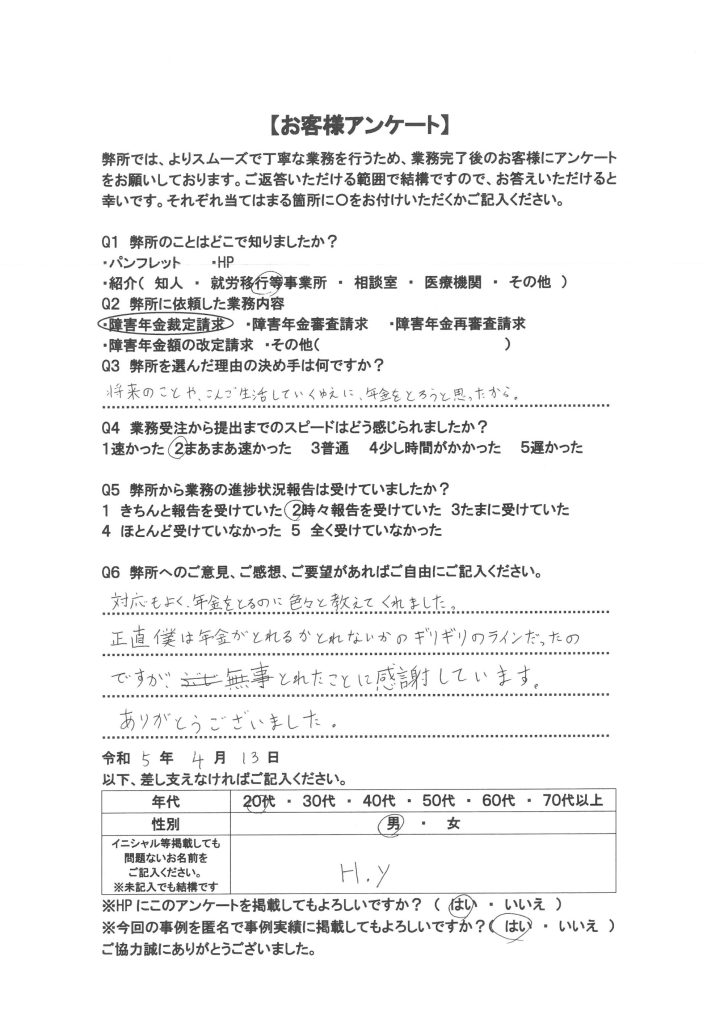 【お客様アンケート】
弊所では、よりスムーズで丁寧な業務を行うため、業務完了後のお客様にアンケート
をお願いしております。ご返答いただける範囲で結構ですので、お答えいただけると
幸いです。それぞれ当てはまる箇所に〇をお付けいただくかご記入ください。
Q1 弊所のことはどこで知りましたか？
・パンフレット ・HP
・紹介（ 知人 ・ 就労移行等事業所 ・ 相談室 ・ 医療機関 ・ その他 ）
Q2 弊所に依頼した業務内容
・障害年金裁定請求 ・障害年金審査請求 ・障害年金再審査請求
・障害年金額の改定請求 ・その他（ ）
Q3 弊所を選んだ理由の決め手は何ですか？
将来のことや、こんご生活していくゆえに、年金をとろうと思ったから。
Q4 業務受注から提出までのスピードはどう感じられましたか？
1速かった 2まあまあ速かった 3普通 4少し時間がかかった 5遅かった
Q5 弊所から業務の進捗状況報告は受けていましたか？
1 きちんと報告を受けていた 2時々報告を受けていた 3たまに受けていた
4 ほとんど受けていなかった 5 全く受けていなかった
Q6 弊所へのご意見、ご感想、ご要望があればご自由にご記入ください。
対応もよく、年金をとるのに色々と教えてくれました。
正直僕は年金がとれるかとれないかのギリギリのラインだったの
ですが、無事とれたことに感謝しています。
ありがとうございました。
令和 5 年 4 月 13 日
以下、差し支えなければご記入ください。
年代 20代 ・ 30代 ・ 40代 ・ 50代 ・ 60代 ・ 70代以上
性別 男 ・ 女
イニシャル等掲載しても
問題ないお名前を
ご記入ください。
※未記入でも結構です
H.y
※HPにこのアンケートを掲載してもよろしいですか？（ はい ・ いいえ ）
※今回の事例を匿名で事例実績に掲載してもよろしいですか？（ はい ・ いいえ ）
ご協力誠にありがとうございました。